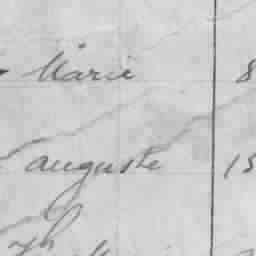 Marie 8
auguste 15